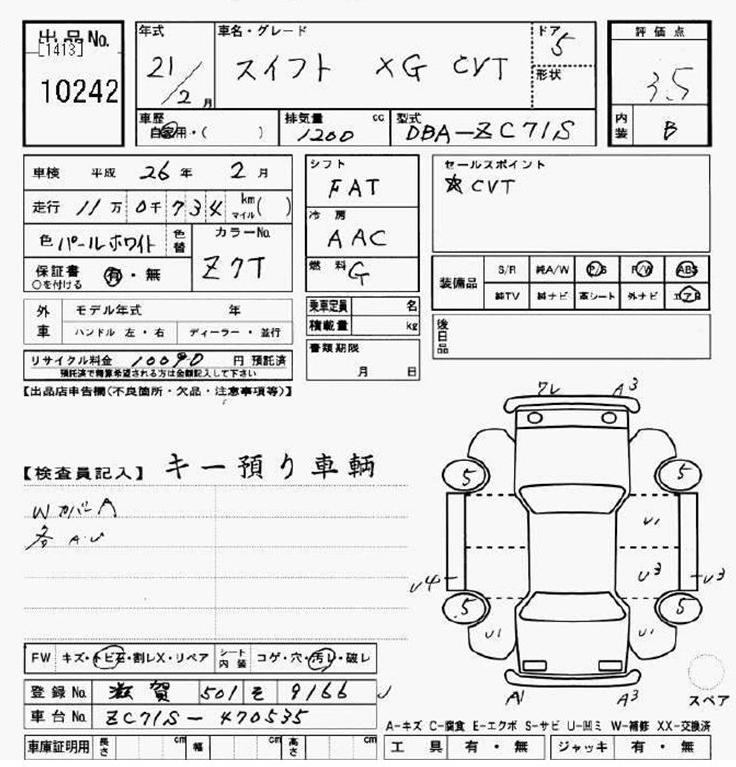 出品No.
[1413]
10242
年式
21/2月
車名・グレード
スイフト XG CVT
ドア 5
形状
評価点
3.5
車歴
自家用・( )
排気量 cc
1200
型式
DBA-ZC71S
内装
B
車検 平成 26年 2月
走行 11万 0千 734 km マイル( )
色 パールホワイト 色替
カラーNo.
Z7T
保証書 有・無
○を付ける
シフト
FAT
冷房
AAC
燃料 G
セールスポイント
☆CVT
装備品
S/R 純A/W P/S P/W ABS
純TV 純ナビ 革シート 外ナビ エアB
外車
モデル年式 年
ハンドル 左・右 ディーラー・並行
乗車定員 名
積載量 kg
後日品
リサイクル料金 10090 円 預託済
預託済で精算希望される方は金額記入して下さい
書類期限
月 日
【出品店申告欄(不良箇所・欠品・注意事項等)】
ワレ A3
【検査員記入】 キー預り車輌
5 5
WカバーA
各A.U
U1
U4 U3 U3
5 5
U1 U1
A1 A3
スペア
FW キズ・トビ石・割レX・リペア
シート内装 コゲ・穴・汚レ・破レ
登録No. 滋賀 501 そ 9166
車台No. ZC71S-470535
A-キズ C-腐食 E-エクボ S-サビ U-凹ミ W-補修 XX-交換済
車庫証明用 長さ cm 幅 cm 高さ cm
工具 有・無 ジャッキ 有・無